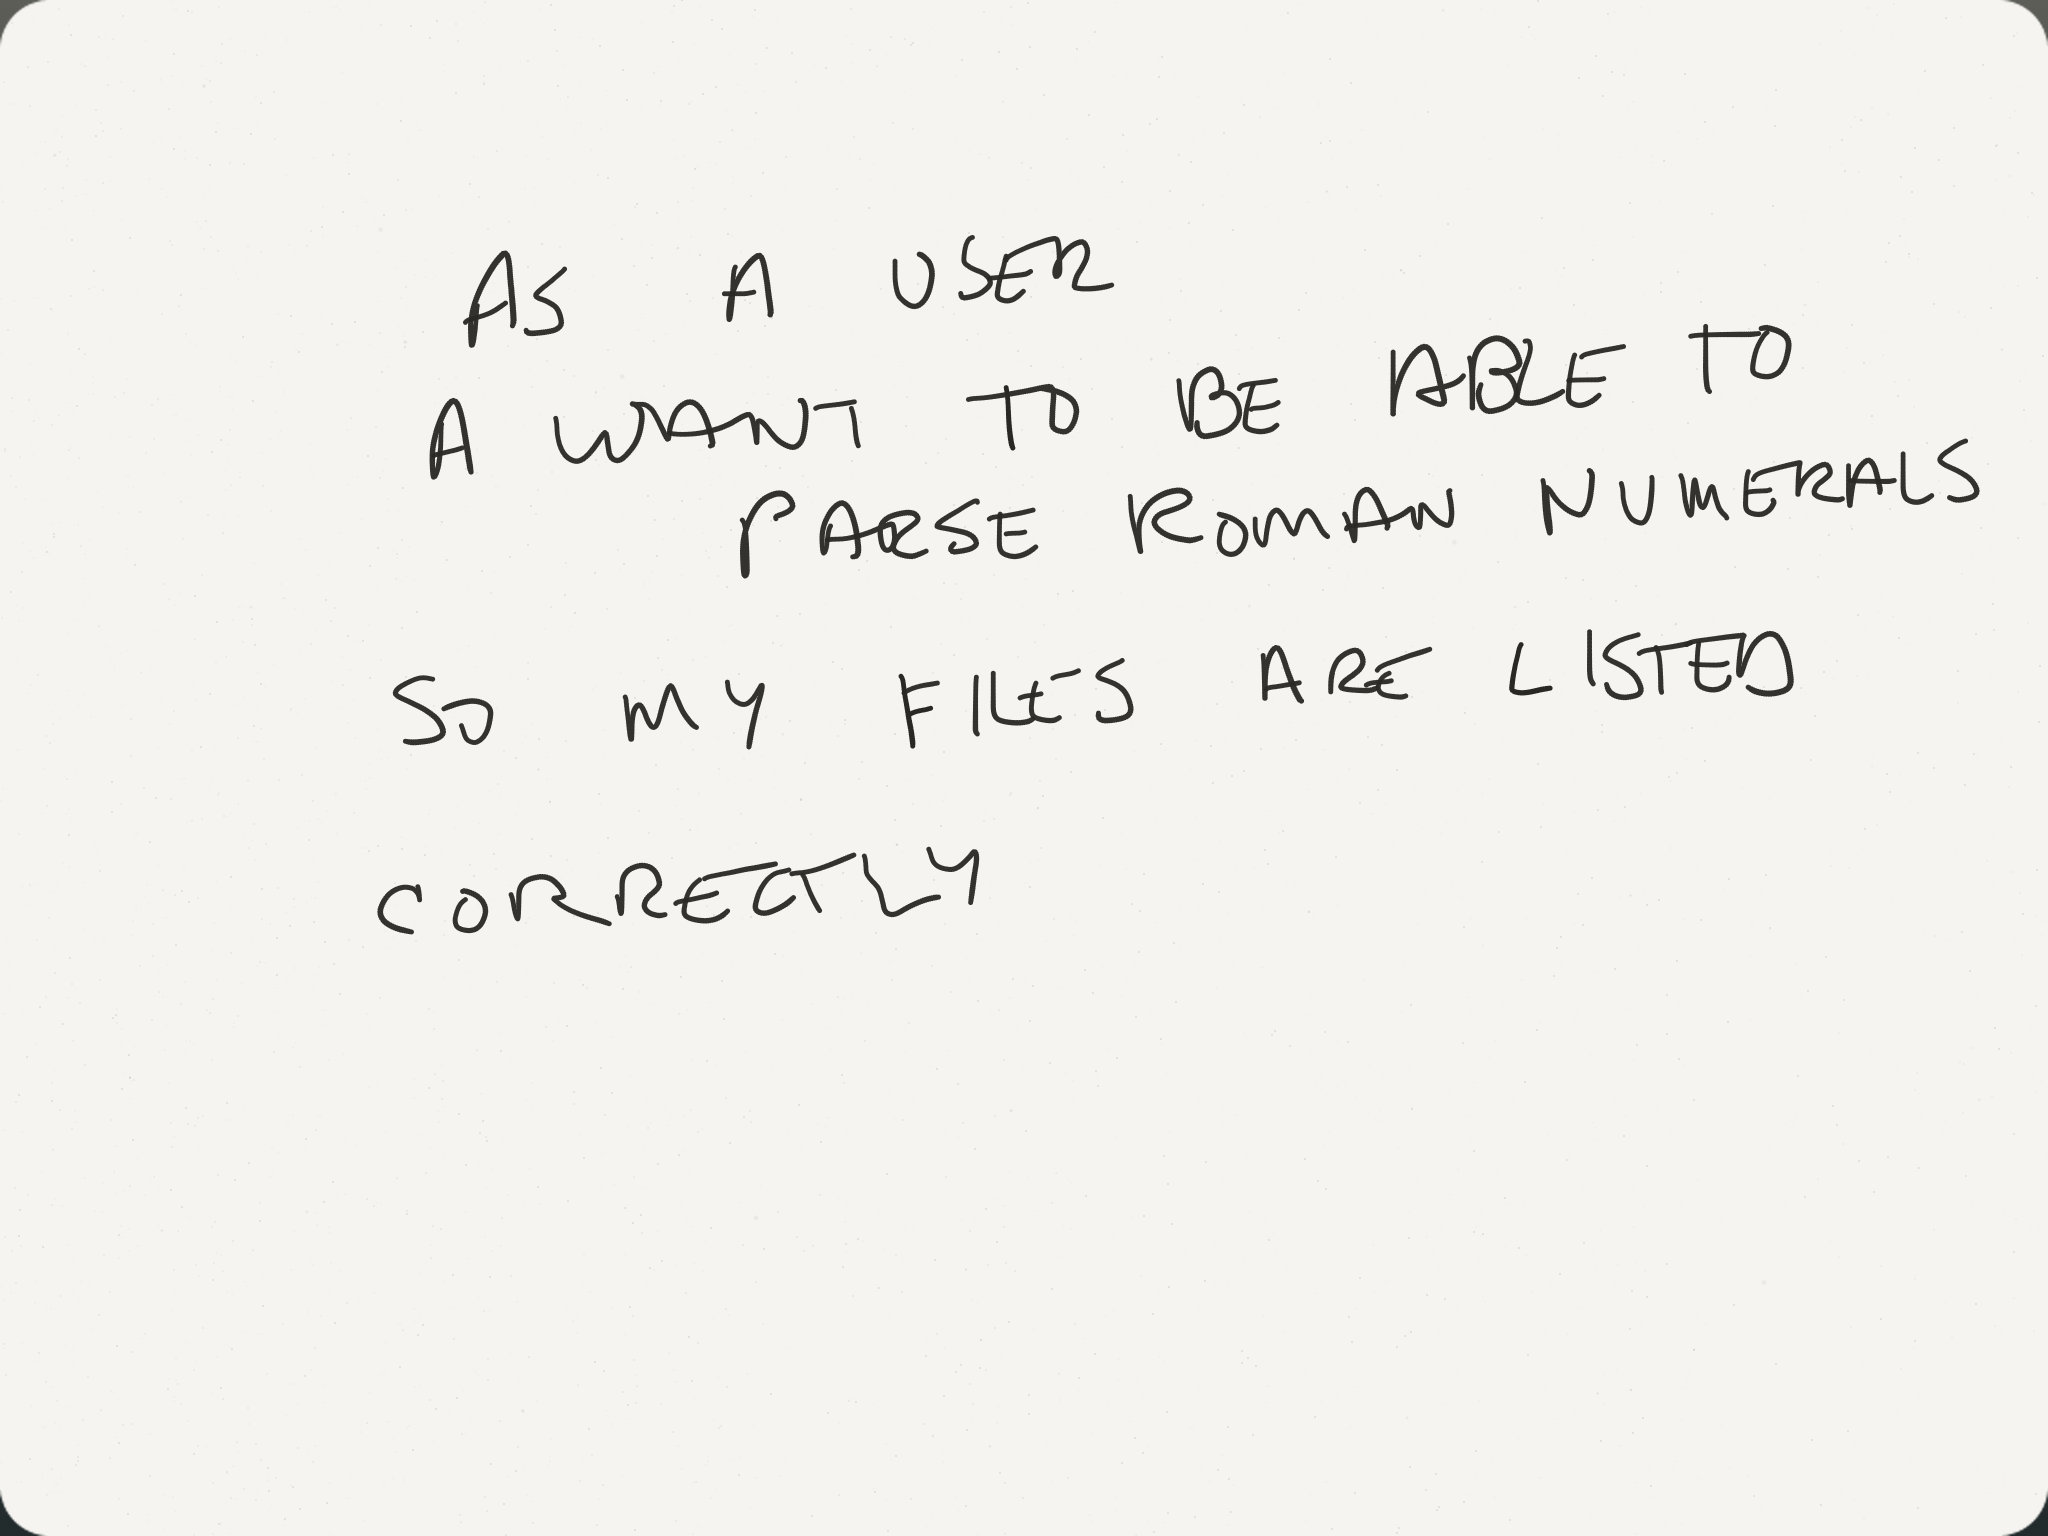 AS A USER
A WANT TO BE ABLE TO
PARSE ROMAN NUMERALS
SO MY FILES ARE LISTED
CORRECTLY